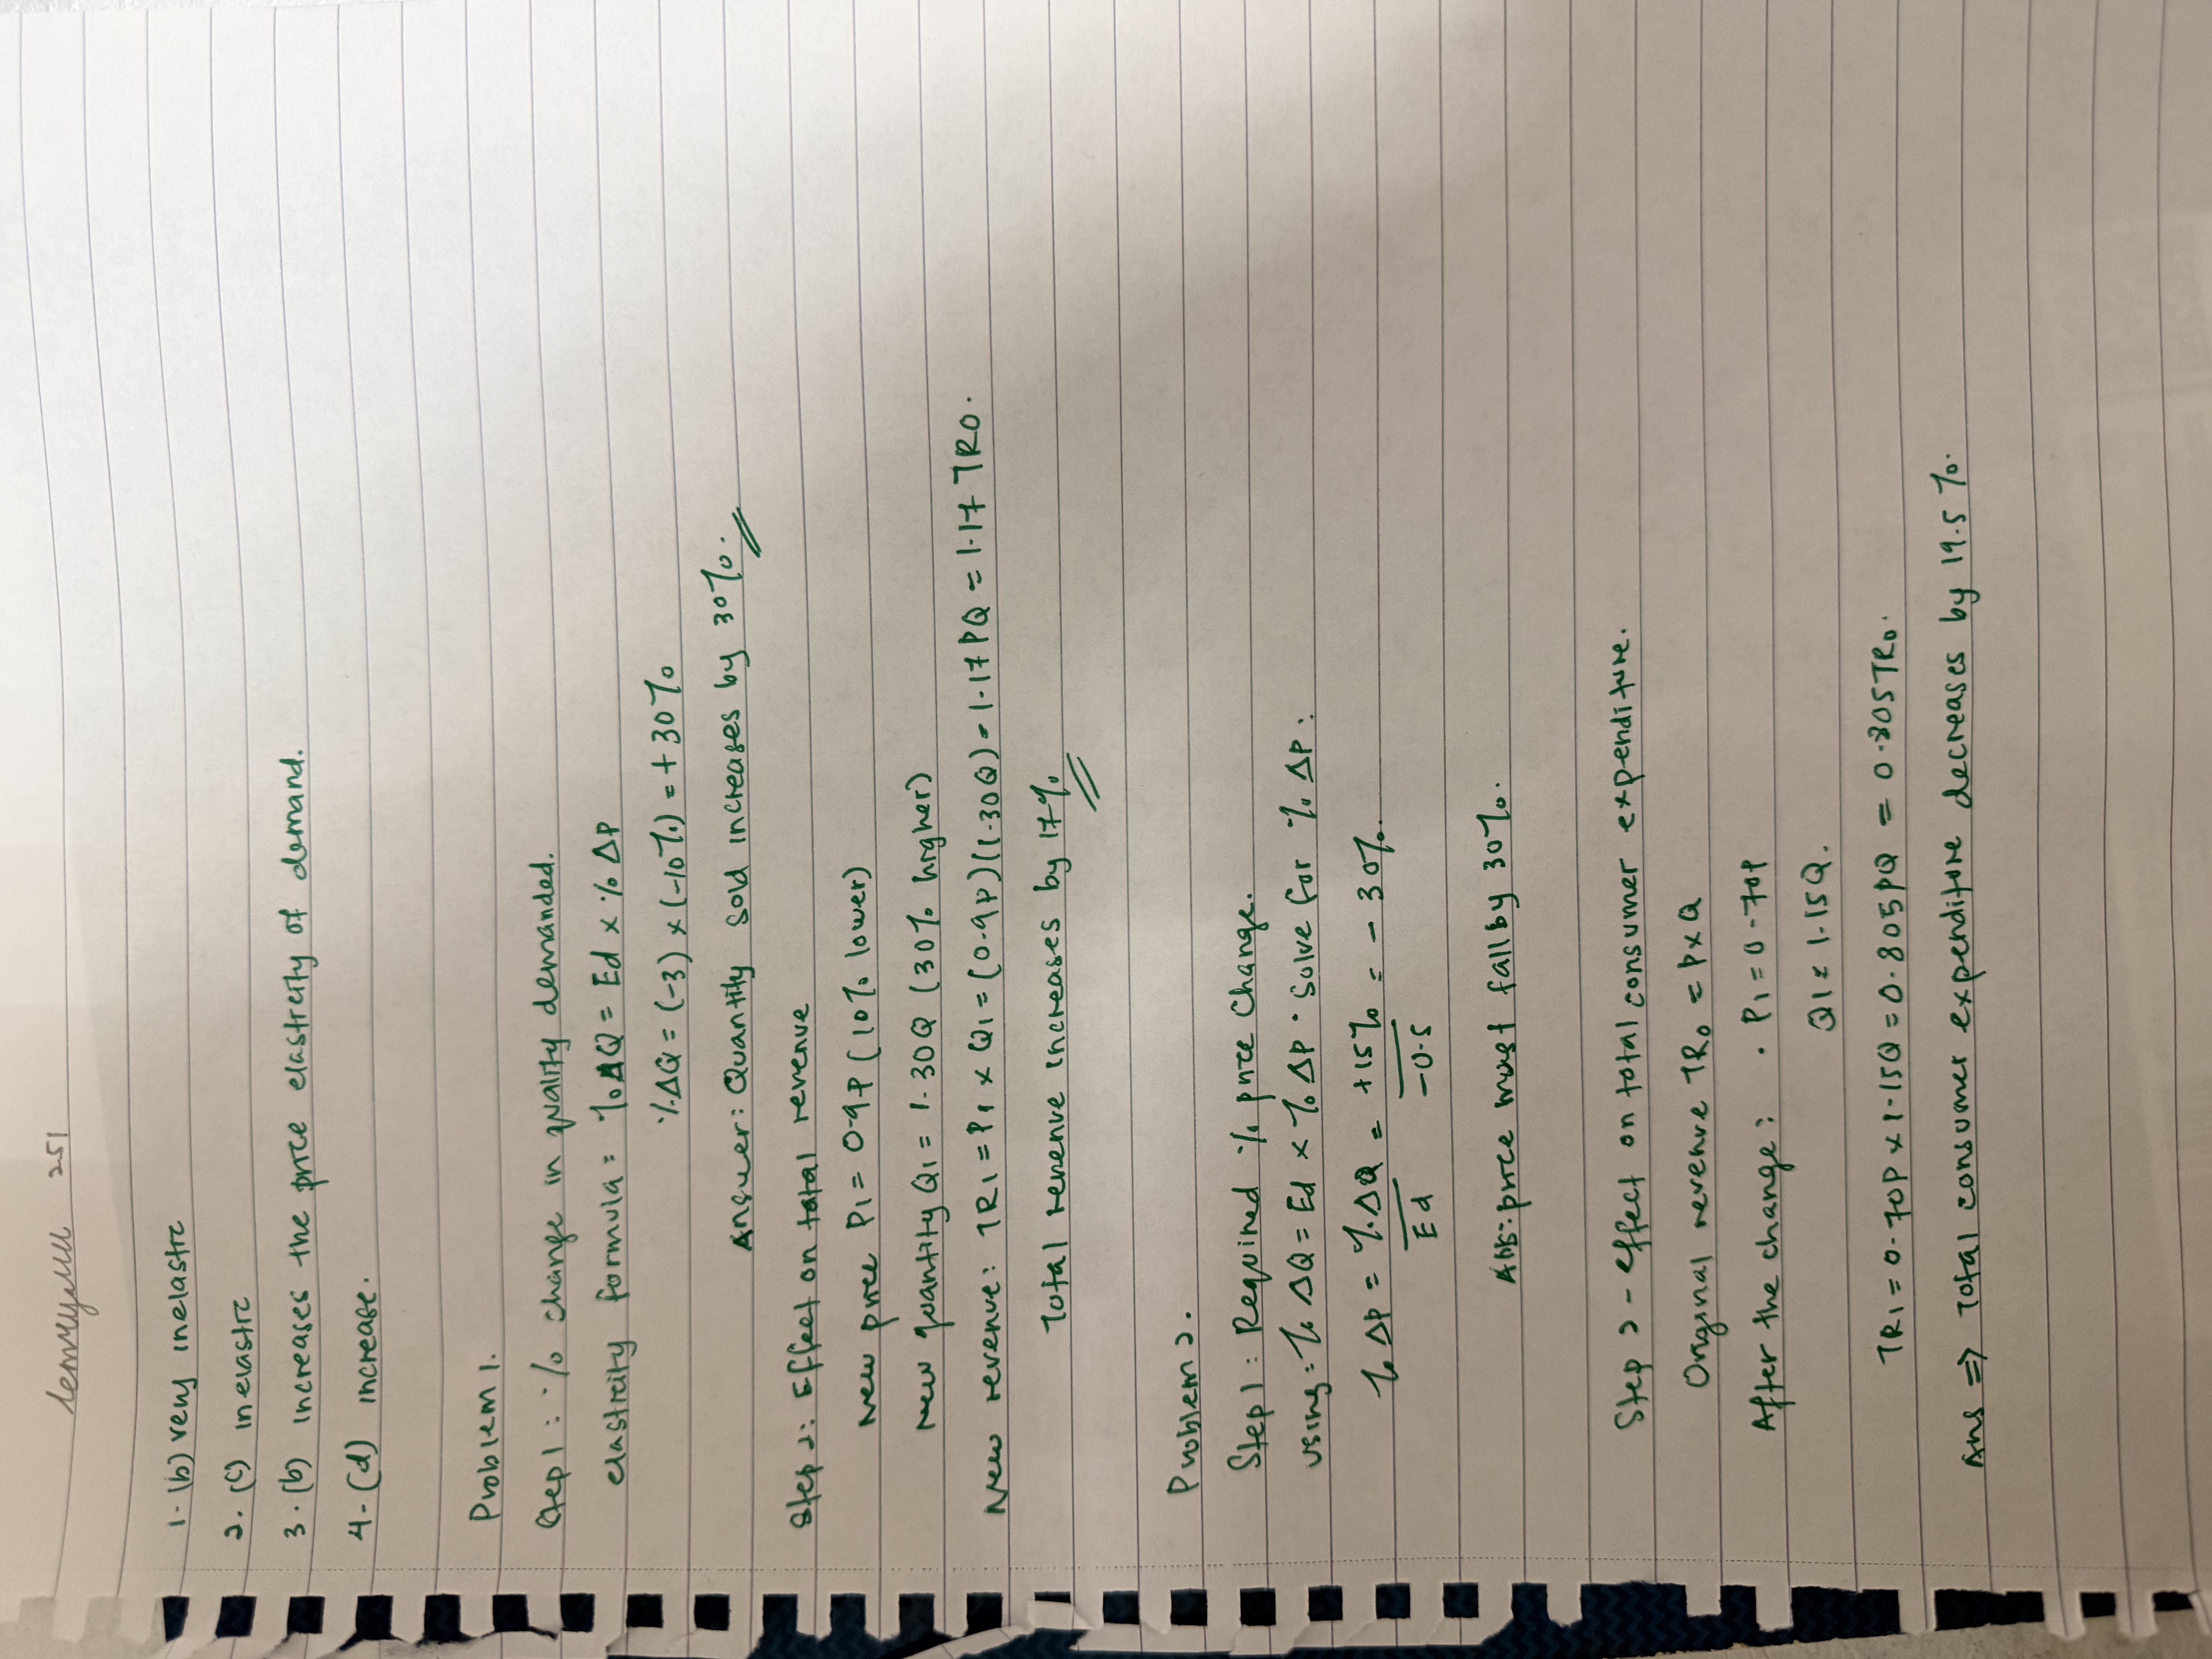 251
1-(b) very inelastic
2. (c) inelastic
3. (b) increases the price elasticity of demand.
4-(d) increase.
Problem 1.
Step 1: % change in quality demanded.
elasticity formula = %ΔQ = Ed x % ΔP
%ΔQ = (-3) x (-10%) = + 30%
Answer: Quantity sold increases by 30%.
Step 2: Effect on total revenue
New price P1 = 0.9P (10% lower)
New quantity Q1 = 1.30Q (30% higher)
New revenue: TR1 = P1 x Q1 = (0.9P)(1.30Q) = 1.17PQ = 1.17 TR0.
Total revenue increases by 17%
Problem 2.
Step 1: Required % price change.
using: % ΔQ = Ed x % ΔP. solve for % ΔP:
% ΔP = %ΔQ / Ed = +15% / -0.5 = - 30%.
Ans: price must fall by 30%.
Step 2 - effect on total consumer expenditure.
Original revenue TR0 = P x Q
After the change: . P1 = 0.70P
Q1 = 1.15Q.
TR1 = 0.70P x 1.15Q = 0.805PQ = 0.805TR0.
Ans ⇒ Total consumer expenditure decreases by 19.5%.